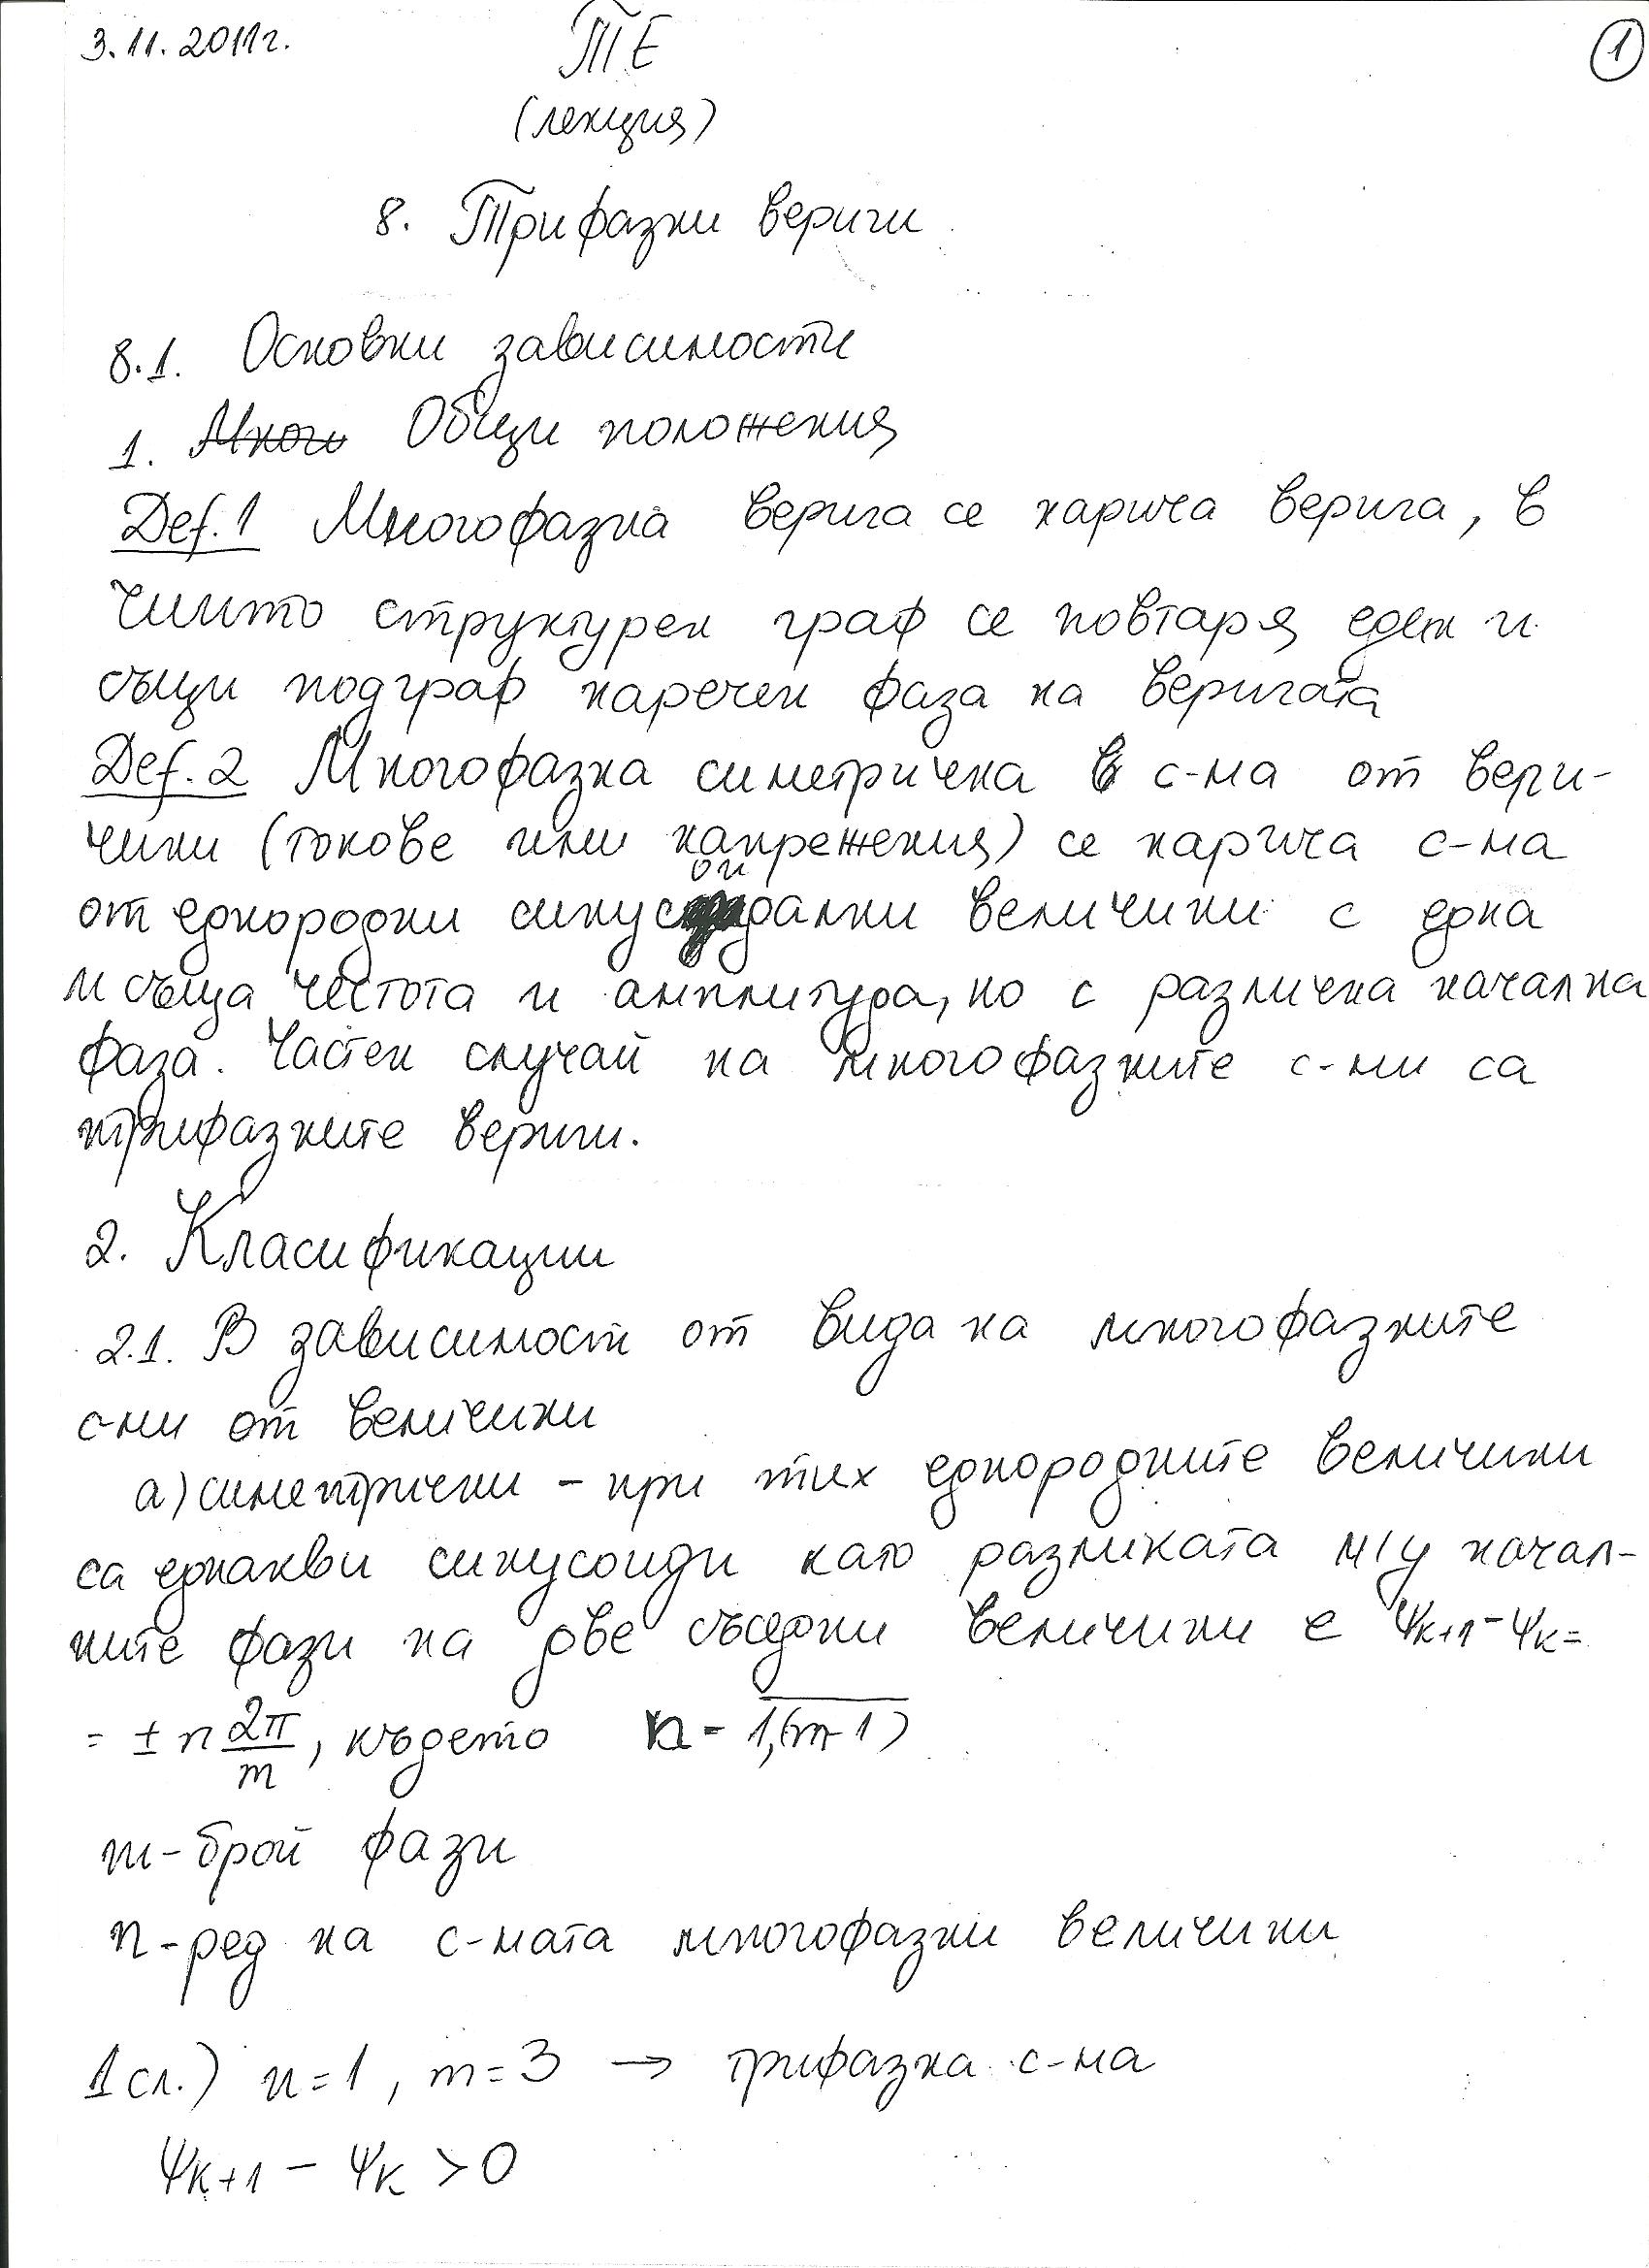 3.11.2011г.
ТЕ
1
(лекция)
8. Трифазни вериги
8.1. Основни зависимости
1. Много Общи положения
Def.1 Многофазна верига се нарича верига, в
чиито структурен граф се повтаря един и
същи подграф наречен фаза на веригата
Def.2 Многофазна симетрична в с-ма от вери-
чини (токове или напрежения) се нарича с-ма
от еднородни синусоидални величини с една
и съща честота и амплитуда, но с различна начална
фаза. Частен случай на многофазните с-ми са
трифазните вериги.
2. Класификации
2.1. В зависимост от вида на многофазните
с-ми от величини
а) симетрични - при тях еднородните величини
са еднакви синусоиди като разликата м/у начал-
ните фази на две съседни величини е Ψk+1 - Ψk =
= ± n 2π/m, където n = 1,(m-1)
m - брой фази
n - ред на с-мата многофазни величини
1сл.) n=1, m=3 → трифазна с-ма
Ψk+1 - Ψk > 0